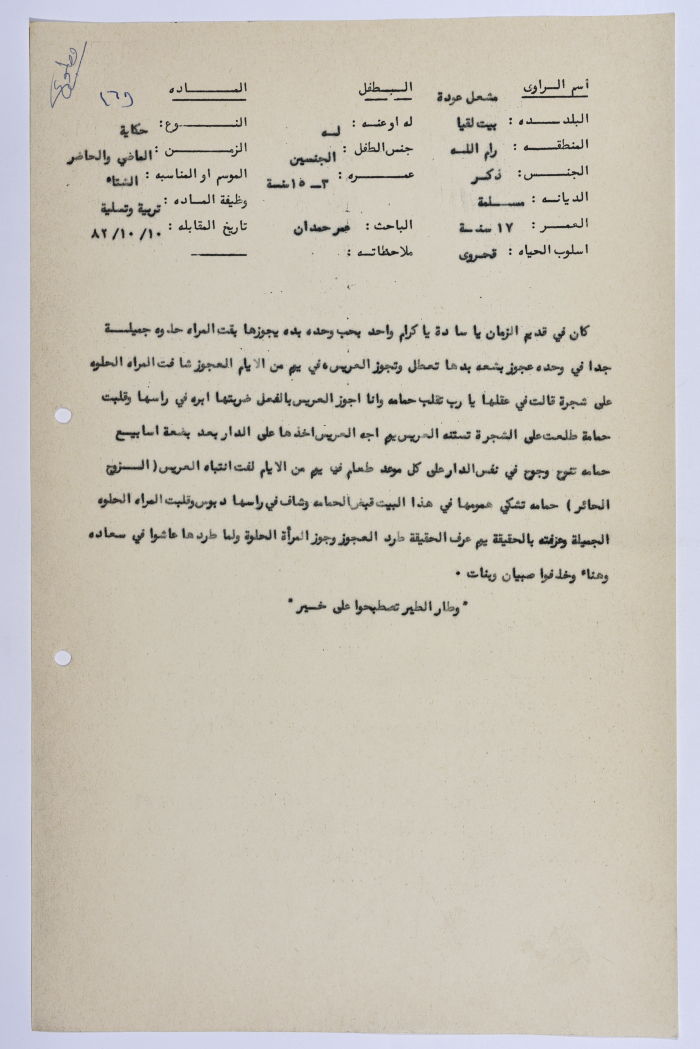 ١٦٩
أسم الراوى مشعل عودة الطفل المادة
البلده : بيت لقيا له او عنه : له النوع : حكاية
المنطقه : رام الله جنس الطفل : الجنسين الزمن : الماضي والحاضر
الجنس : ذكر عمره : ٣-١٥ سنة الموسم او المناسبه : الشتاء
الديانه : مسلمة وظيفة الماده : تربية وتسلية
العمر : ١٧ سنة الباحث : عمر حمدان تاريخ المقابله : ٨٢/١٠/١٠
اسلوب الحياه : قروى ملاحظاته :
كان في قديم الزمان يا سادة يا كرام واحد بحب وحده بده يجوزها بقت المراه حلوه جميلة
جدا في وحده عجوز بشعه بدها تعطل وتجوز العريس ه في يوم من الايام العجوز شافت المراه الحلوه
على شجرة قالت في عقلها يا رب تقلب حمامه وانا اجوز العريس بالفعل ضربتها ابره في راسها وقلبت
حمامة طلعت على الشجرة تستنه العريس يوم اجه العريس اخذها على الدار بعد بضعة اسابيع
حمامه تنوح وجوج في نفس الدار على كل موعد طعام في يوم من الايام لفت انتباه العريس ( الزوج
الحائر ) حمامه تشكي همومها في هذا البيت قبض الحمامه وشاف في راسها دبوس وقلبت المراه الحلوه
الجميلة وعرفته بالحقيقة يوم عرف الحقيقة طرد العجوز وجوز المرأة الحلوة ولما طردها عاشوا في سعاده
وهناء وخلفوا صبيان وبنات .
" وطار الطير تصطبحوا على خير "